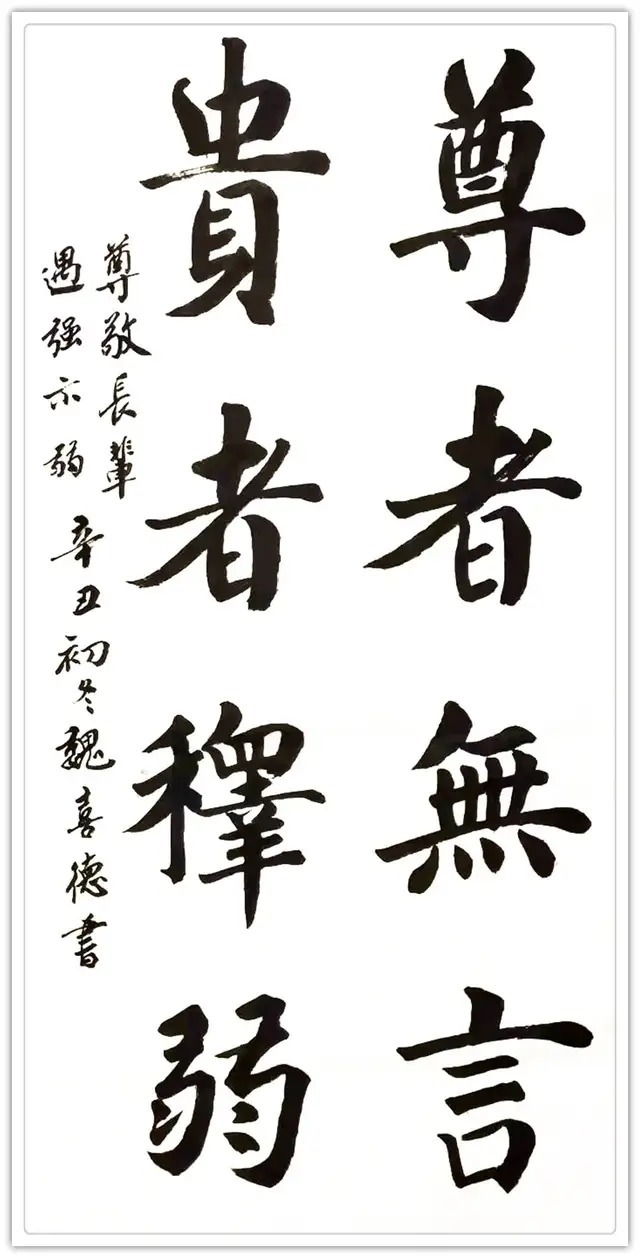 尊者無言
貴者釋弱
尊敬長輩
遇强示弱
辛丑初冬魏喜德書